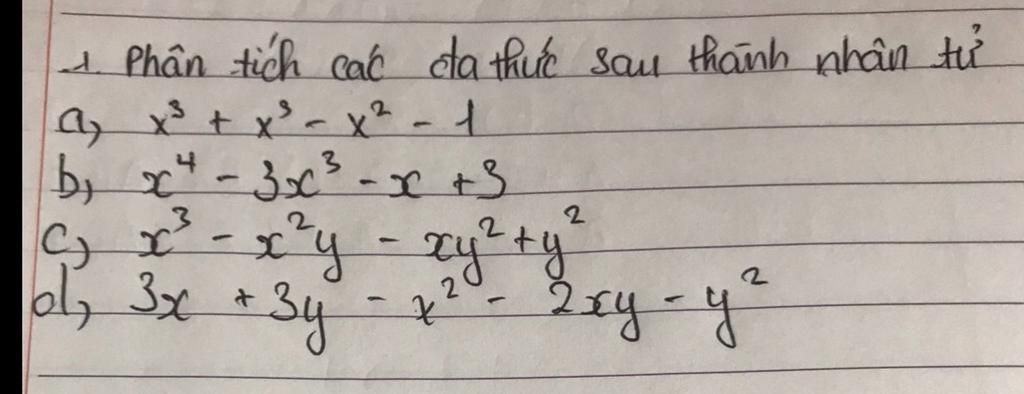 1. Phân tích các đa thức sau thành nhân tử
a, x³ + x³ - x² - 1
b, x⁴ - 3x³ - x + 3
c, x³ - x²y - xy² + y²
d, 3x + 3y - x² - 2xy - y²